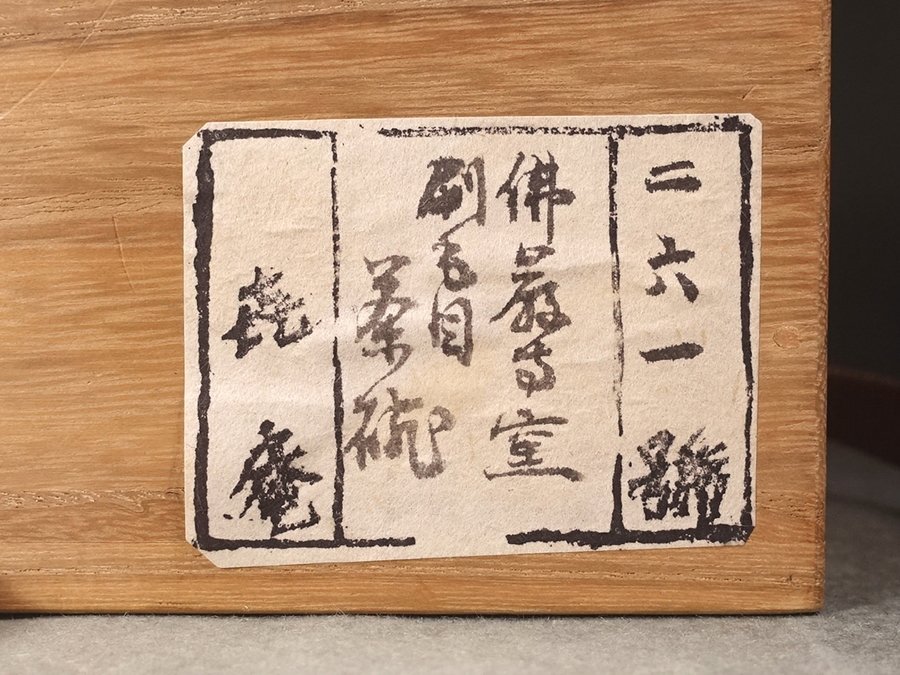 二六一號
佛嚴寺窯
刷毛目
茶碗
㐂庵